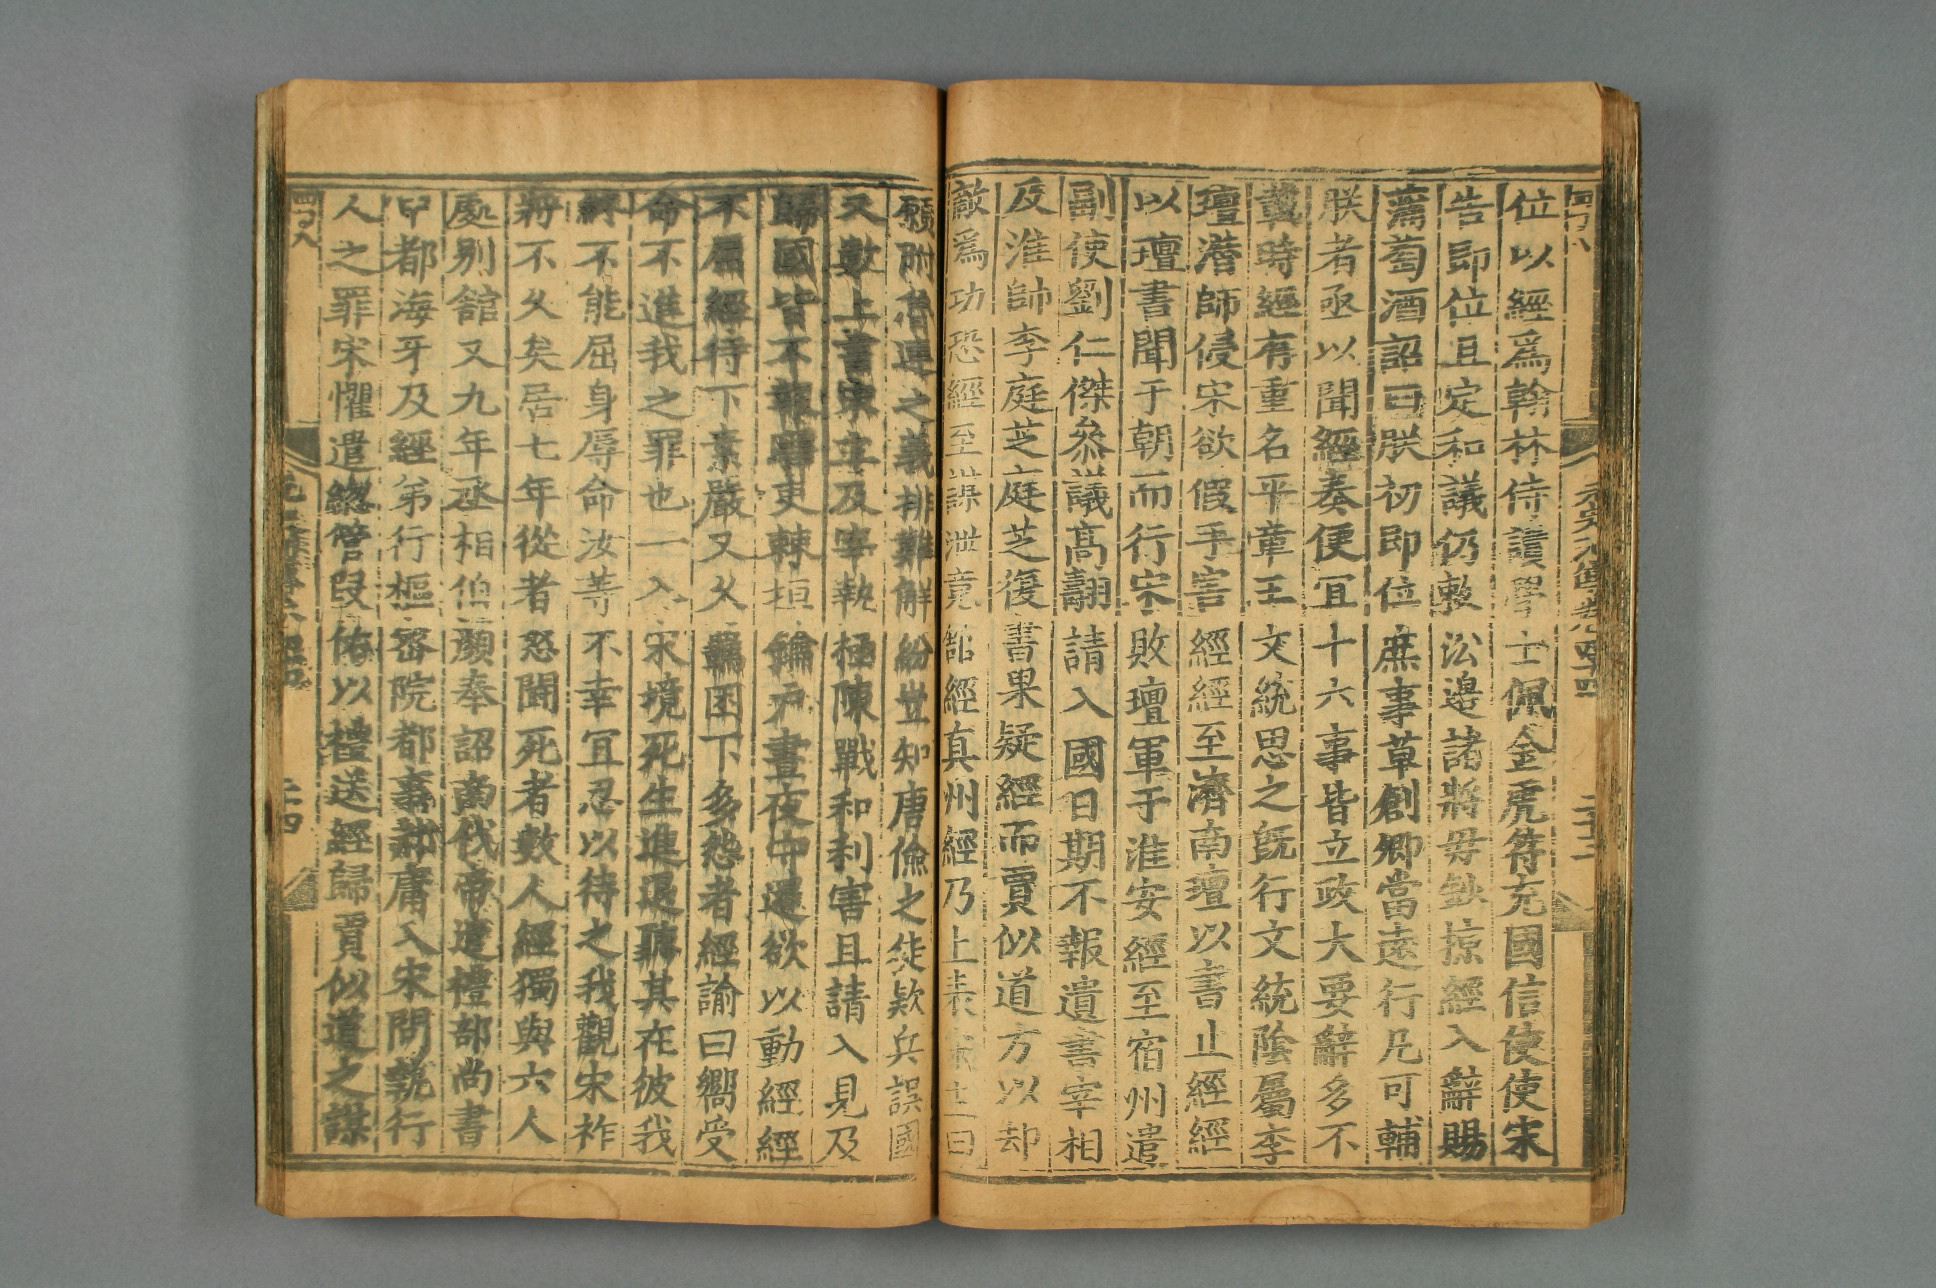 位以經爲翰林侍讀學士佩金虎符充國信使使宋
告即位且定和議仍敕沿邊諸將毋鈔掠經入辭賜
蒲萄酒詔曰朕初即位庶事草創卿當遠行凡可輔
朕者亟以聞經奏便宜十六事皆立政大要辭多不
載時經有重名平章王文統忌之旣行文統陰屬李
璮潛師侵宋欲假手害經經至濟南璮以書止經經
以璮書聞于朝而行宋敗璮軍于淮安經至宿州遣
副使劉仁傑叅議高翿請入國日期不報遺書宰相
及淮帥李庭芝庭芝復書果疑經而賈似道方以却
敵爲功恐經至謀泄竟館經真州經乃上表宋主曰
願附魯連之義排難解紛豈知唐儉之徒欵兵誤國
又數上書宋主及宰執極陳戰和利害且請入見及
歸國皆不報驛吏棘垣鑰戶晝夜守邏欲以動經經
不屈經待下素嚴又久羈困下多怨者經諭曰嚮受
命不進我之罪也一入宋境死生進退聽其在彼我
終不能屈身辱命汝等不幸宜忍以待之我觀宋祚
將不久矣居七年從者怒鬪死者數人經獨與六人
處別館又九年丞相伯顏奉詔南伐帝遣禮部尚書
中都海牙及經弟行樞密院都事郝庸入宋問執行
人之罪宋懼遣總管段佑以禮送經歸賈似道之謀